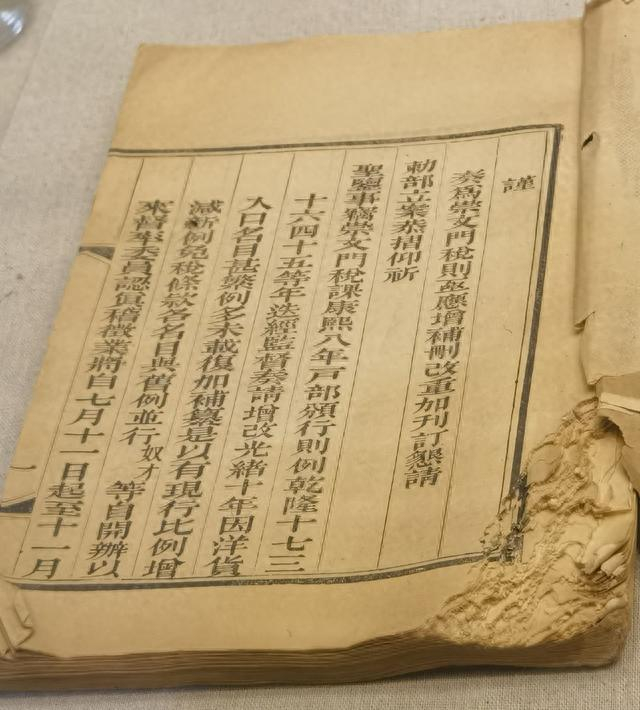 謹
奏為崇文門稅則亟應增補刪改重加刊訂懇請
勅部立案恭摺仰祈
聖鑒事竊崇文門稅課康熙八年戸部頒行則例乾隆十七三
十六四十五等年迭經監督奏請增改光緒十年因洋貨
入口名目甚繁例多未載復加補纂是以有現行比例增
減新例免稅條款各名目與舊例並行奴才等自開辦以
來督率委員認真稽徵業將自七月十一日起至十一月